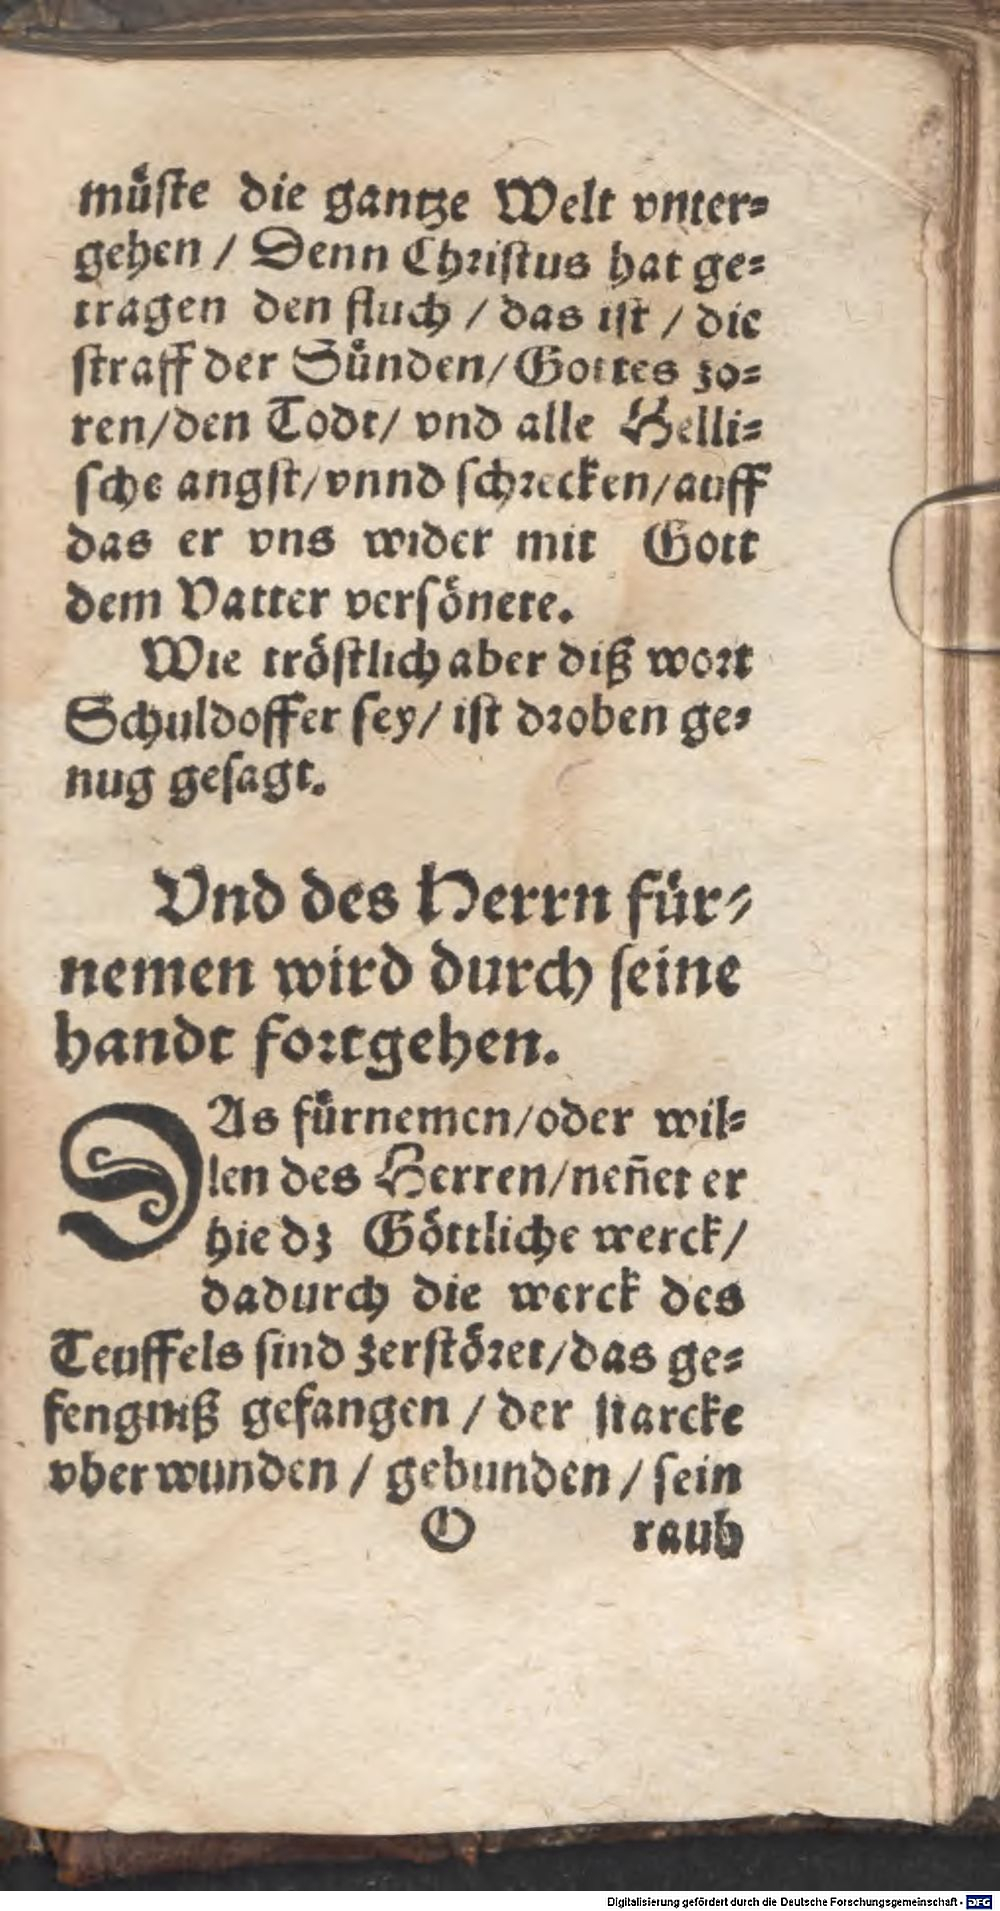 müſte die gantze Welt vnter⸗
gehen / Denn Chriſtus hat ge⸗
tragen den fluch / das iſt / die
ſtraff der Sünden/ Gottes zo⸗
ren/den Todt/ vnd alle Helli⸗
ſche angſt/vnnd ſchrecken/auff
das er vns wider mit Gott
dem Vatter verſönete.
Wie tröſtlich aber diß wort
Schuldoffer ſey/ iſt droben ge⸗
nug geſagt.
Vnd des Herrn für⸗
nemen wird durch ſeine
handt fortgehen.
DAs fürnemen/oder wil⸗
len des Herren/neñet er
hie dz Göttliche werck/
dadurch die werck des
Teuffels ſind zerſtöret/das ge⸗
fengniß gefangen / der ſtarcke
vberwunden / gebunden / ſein
O raub
Digitalisierung gefördert durch die Deutsche Forschungsgemeinschaft - DFG